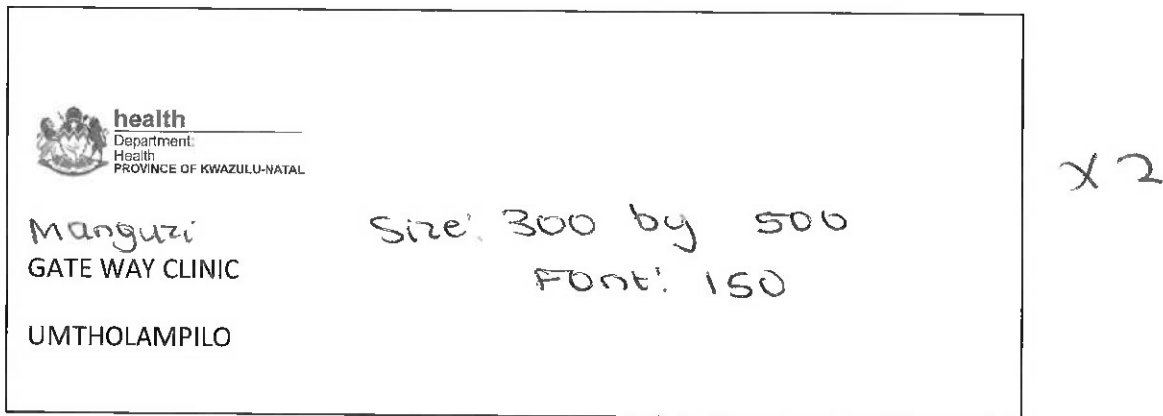 health
Department:
Health
PROVINCE OF KWAZULU-NATAL
Manguzi
GATE WAY CLINIC
UMTHOLAMPILO
Size: 300 by 500
Font: 150
X 2